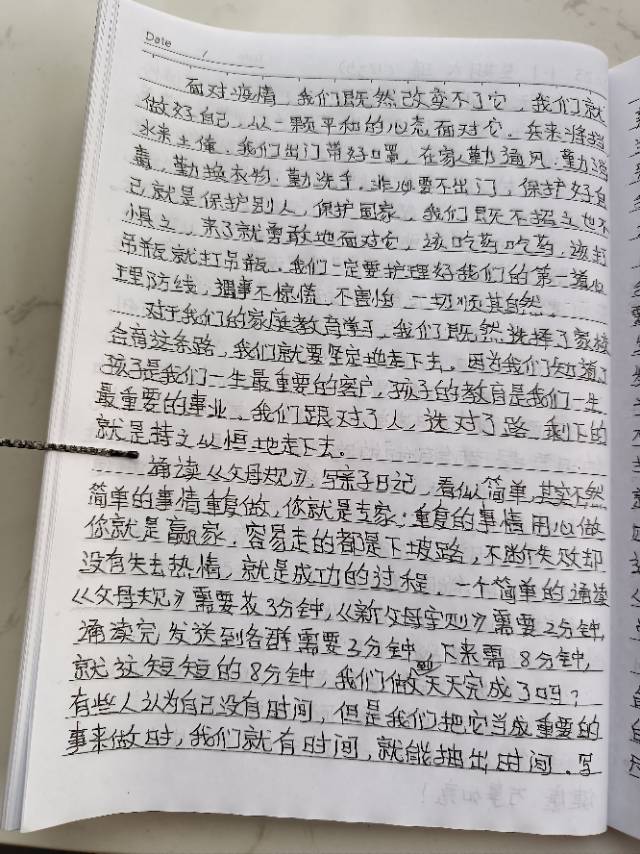 Date /
面对疫情，我们既然改变不了它，我们就
做好自己，以一颗平和的心态面对它，兵来将挡
水来土俺，我们出门带好口罩，在家勤通风，勤消
毒，勤换衣物，勤洗手，非必要不出门，保护好自
己就是保护别人，保护国家，我们既不招之也不
惧之，来了就勇敢地面对它，该吃药吃药，该打
吊瓶就打吊瓶，我们一定要护理好我们的第一道心
理防线，遇事不惊慌，不害怕，一切顺其自然。
对于我们的家庭教育学习，我们既然选择了家校
合育这条路，我们就要坚定地走下去。因为我们知道了
孩子是我们一生最重要的客户，孩子的教育是我们一生
最重要的事业，我们跟对了人，选对了路，剩下的
就是持之以恒地走下去。
诵读《父母规》，写亲子日记，看似简单，其实不然
简单的事情重复做，你就是专家，重复的事情用心做
你就是赢家，容易走的都是下坡路，不断失败却
没有失去热情，就是成功的过程，一个简单的诵读
《父母规》需要花3分钟，《新父母守则》需要2分钟，
诵读完发送到各群需要3分钟，下来需8分钟，
就这短短的8分钟，我们做到天天完成了吗？
有些人认为自己没有时间，但是我们把它当成重要的
事来做时，我们就有时间，就能抽出时间。写